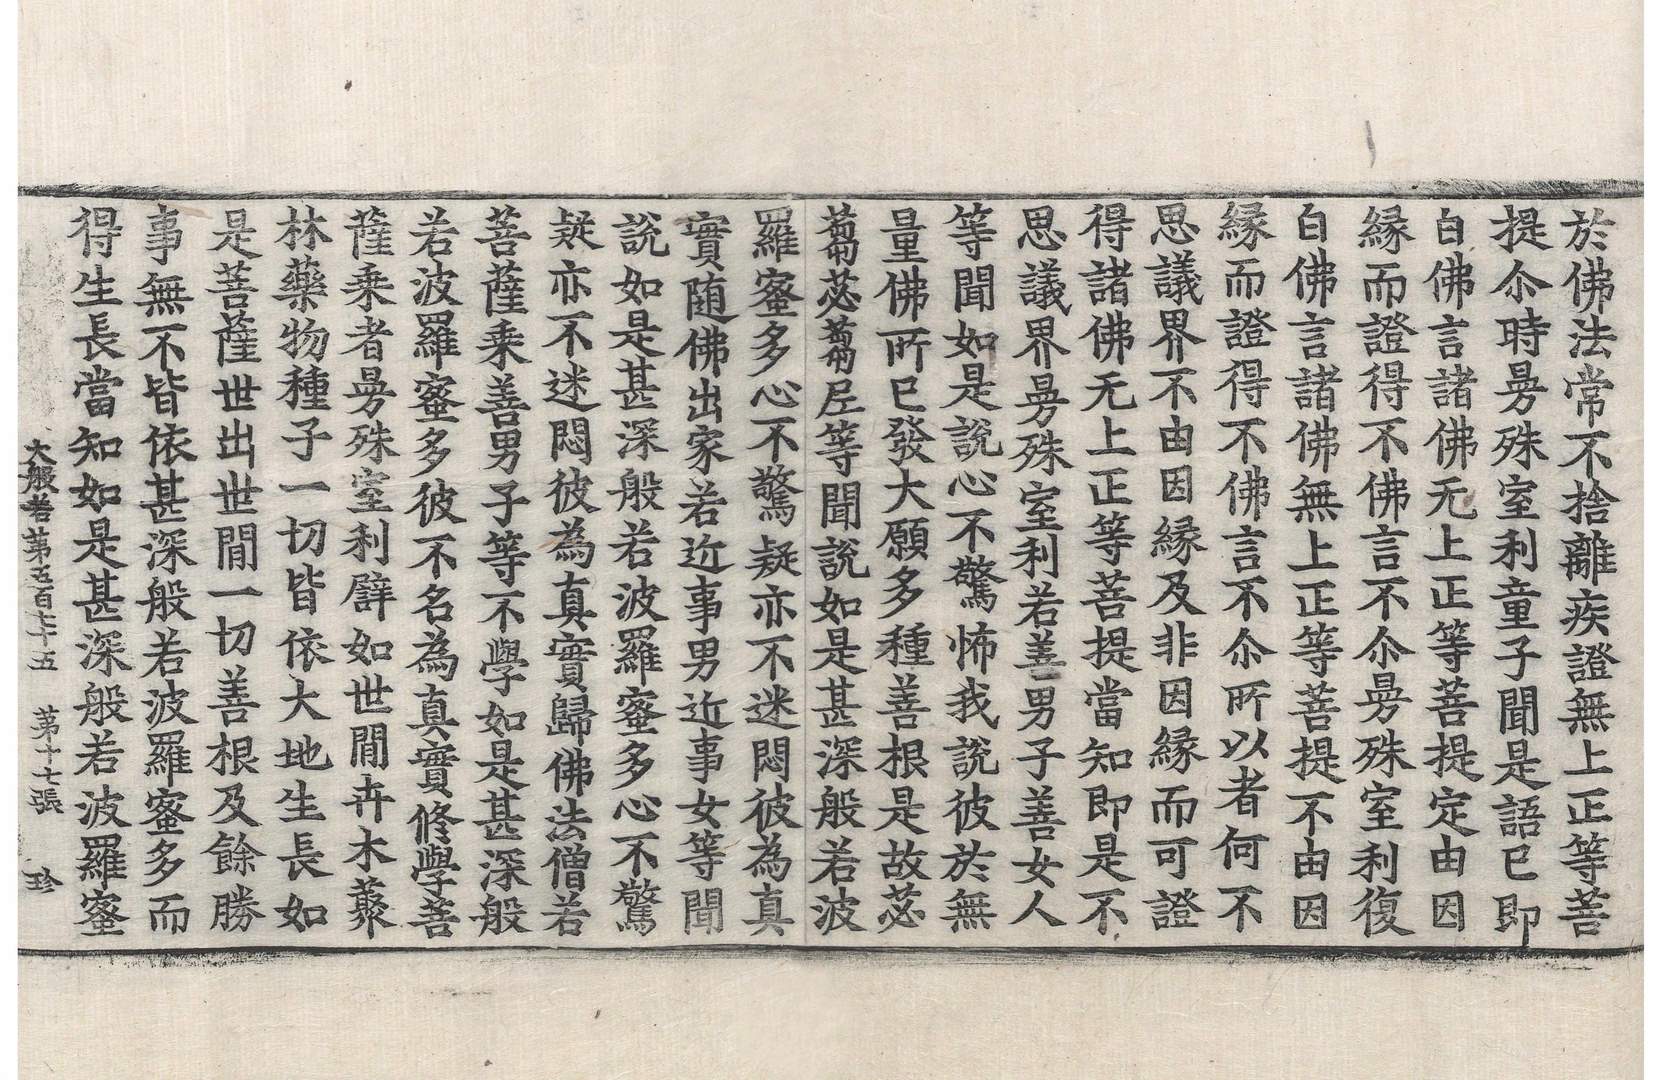 於佛法常不捨離疾證無上正等菩
提尒時曼殊室利童子聞是語已即
白佛言諸佛无上正等菩提定由因
緣而證得不佛言不尒曼殊室利復
白佛言諸佛無上正等菩提不由因
緣而證得不佛言不尒所以者何不
思議界不由因緣及非因緣而可證
得諸佛无上正等菩提當知即是不
思議界曼殊室利若善男子善女人
等聞如是說心不驚怖我說彼於無
量佛所已發大願多種善根是故苾
蒭苾蒭尼等聞說如是甚深般若波
羅蜜多心不驚疑亦不迷悶彼為真
實隨佛出家若近事男近事女等聞
說如是甚深般若波羅蜜多心不驚
疑亦不迷悶彼為真實歸佛法僧若
菩薩乘善男子等不學如是甚深般
若波羅蜜多彼不名為真實修學菩
薩乘者曼殊室利譬如世間卉木藂
林藥物種子一切皆依大地生長如
是菩薩世出世間一切善根及餘勝
事無不皆依甚深般若波羅蜜多而
得生長當知如是甚深般若波羅蜜
大般若第五百七十五 第十七張 珍